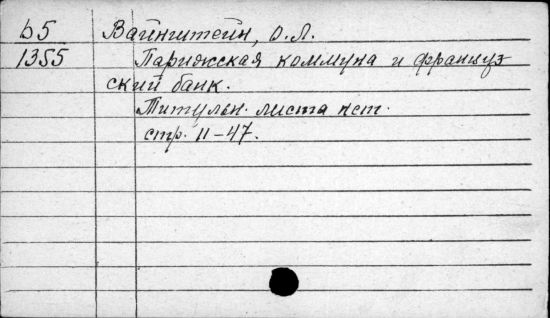 Б5 Вайнштейн, О.Л.
1355 Парижская коммуна и француз
ский банк.
Титульн. листа нет.
стр. 11-47.